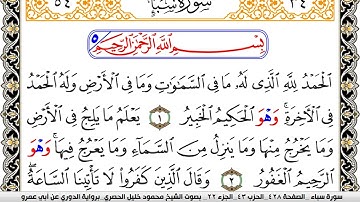 ٥٤ سورة سبأ ٣٤
٥ بِسْمِ اللَّهِ الرَّحْمَٰنِ الرَّحِيمِ
الْحَمْدُ لِلَّهِ الَّذِي لَهُ مَا فِي السَّمَٰوَٰتِ وَمَا فِي الْأَرْضِ وَلَهُ الْحَمْدُ
فِي الْآخِرَةِ وَهْوَ الْحَكِيمُ الْخَبِيرُ ١ يَعْلَمُ مَا يَلِجُ فِي الْأَرْضِ
وَمَا يَخْرُجُ مِنْهَا وَمَا يَنزِلُ مِنَ السَّمَاءِ وَمَا يَعْرُجُ فِيهَا وَهْوَ
الرَّحِيمُ الْغَفُورُ ٢ وَقَالَ الَّذِينَ كَفَرُوا لَا تَأْتِينَا السَّاعَةُ
سورة سباء . الصفحة ٤٢٨ . الحزب ٤٣ . الجزء ٢٢ . بصوت الشيخ محمود خليل الحصري. برواية الدوري عن أبي عمرو